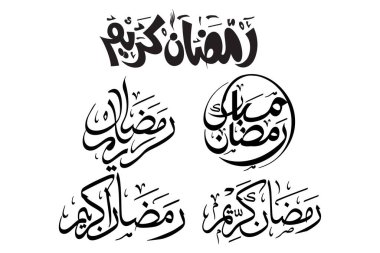 رمضان كريم
رمضان كريم
رمضان مبارك
رمضان اكريم
رمضان كريم